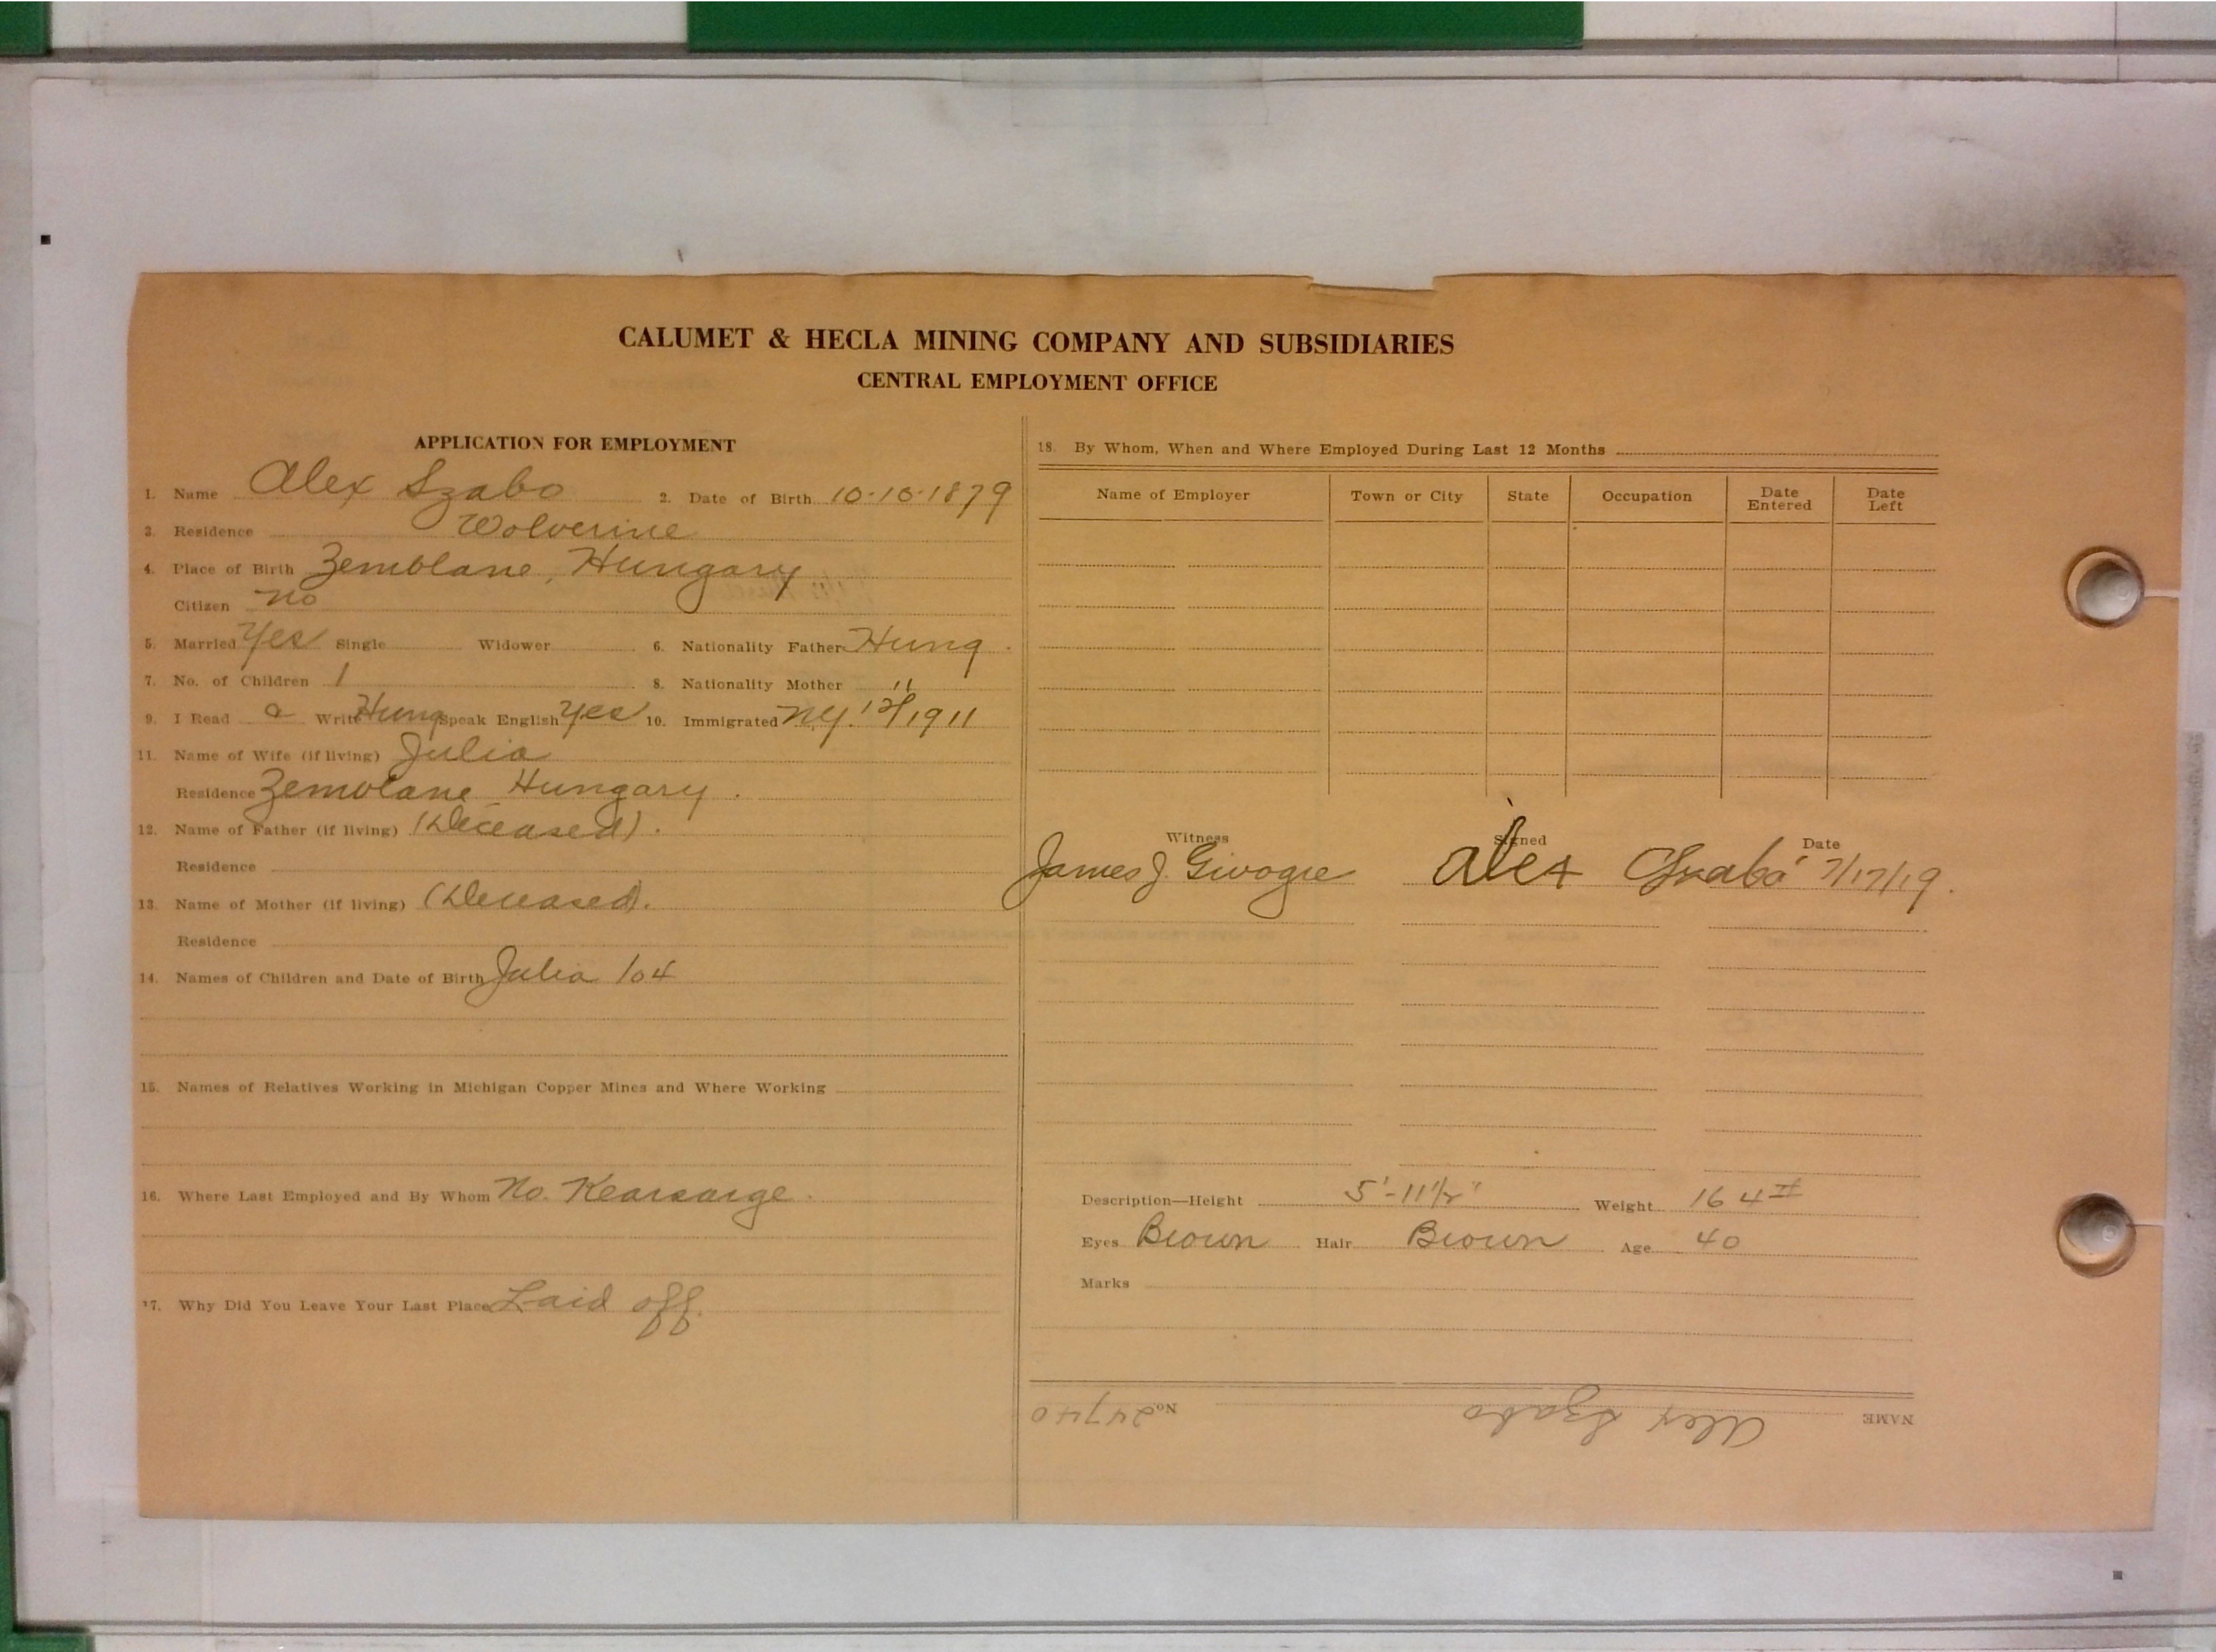 CALUMET & HECLA MINING COMPANY AND SUBSIDIARIES
CENTRAL EMPLOYMENT OFFICE
APPLICATION FOR EMPLOYMENT
1. Name Alex Szabo 2. Date of Birth 10-10-1879
3. Residence Wolverine
4. Place of Birth Zemblane, Hungary
Citizen no
5. Married Yes Single Widower 6. Nationality Father Hung
7. No. of Children 1 8. Nationality Mother "
9. I Read a Write Hung Speak English Yes 10. Immigrated N.Y. 12/1911
11. Name of Wife (if living) Julia
Residence Zemblane Hungary.
12. Name of Father (if living) (Deceased).
Residence
13. Name of Mother (if living) (Deceased).
Residence
14. Names of Children and Date of Birth Julia 104
15. Names of Relatives Working in Michigan Copper Mines and Where Working
16. Where Last Employed and By Whom No. Kearsarge.
17. Why Did You Leave Your Last Place Laid off.
18. By Whom, When and Where Employed During Last 12 Months
Name of Employer Town or City State Occupation Date Entered Date Left
Witness Signed Date
James J. Alex Szabó 7/17/19.
Description—Height 5'-11½" Weight 164 #
Eyes Brown Hair Brown Age 40
Marks
NAME Alex Szabo No. 24740